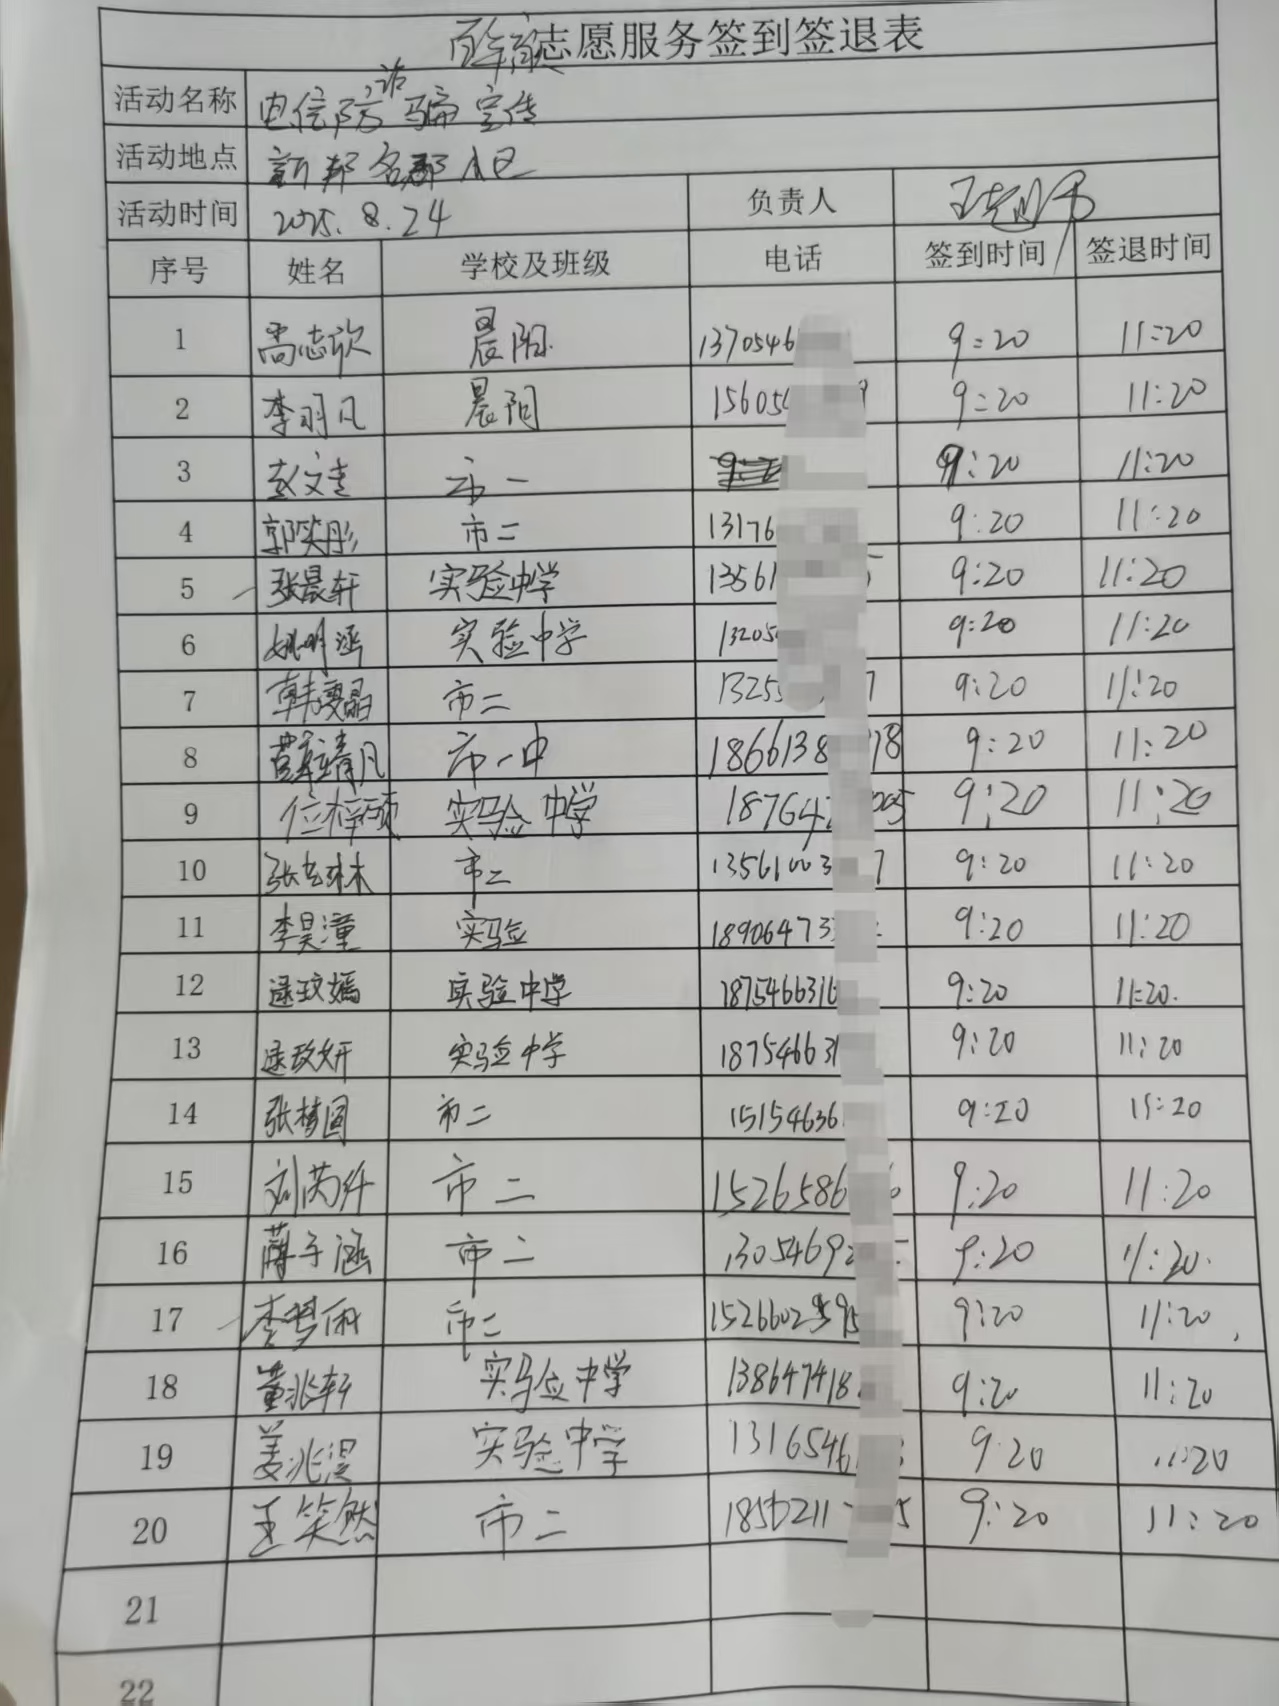 志愿服务签到签退表
活动名称 电信防诈骗宣传
活动地点 新邦名郡小区
活动时间 2025.8.24 负责人
序号 姓名 学校及班级 电话 签到时间 签退时间
1 尚志欣 晨阳 1370546 9:20 11:20
2 李明凡 晨阳 15605 9:20 11:20
3 赵文 市一 9:20 11:20
4 郭笑彤 市二 13176 9:20 11:20
5 张晨轩 实验中学 13561 9:20 11:20
6 姚明涵 实验中学 13205 9:20 11:20
7 韩雯晶 市二 1325 7 9:20 11:20
8 靖凡 市一中 1866138 18 9:20 11:20
9 位梓硕 实验中学 187647 005 9:20 11:20
10 张 琳 市二 13561003 7 9:20 11:20
11 李昊潼 实验 189064733 9:20 11:20
12 逯玟嫣 实验中学 1875466316 9:20 11:20.
13 逯玟妍 实验中学 187546631 9:20 11:20
14 张梦圆 市二 151546361 9:20 11:20
15 刘芮纤 市二 15265866 9:20 11:20
16 薄子涵 市二 13054692 9:20 11:20.
17 李梦雨 市二 1526602 595 9:20 11:20
18 董兆轩 实验中学 138647418 9:20 11:20
19 姜兆湜 实验中学 1316546 9:20 11:20
20 王笑然 市二 1850211 5 9:20 11:20
21
22